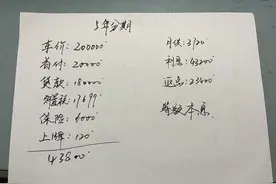 5年分期
车价: 200000
首付: 20000
贷款: 180000
购置税: 17699
保险: 6000
上牌: 120
43800
月供: 3720
利息: 43200
返点: 23400
等额本息